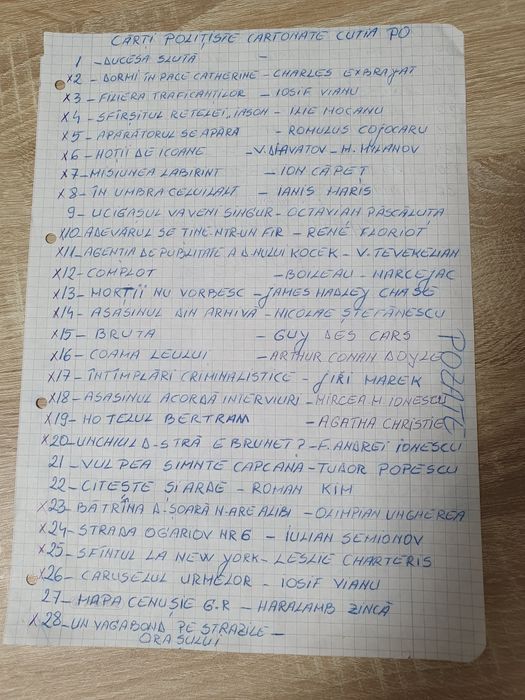 CĂRȚI POLIȚISTE CARTONATE CUTIA PO
1 - DUCESA SLUTĂ -
x2 - DORMI ÎN PACE CATHERINE - CHARLES EXBRAYAT
x3 - FILIERA TRAFICANȚILOR - IOSIF VIANU
x4 - SFÎRȘITUL REȚELEI, IASON - ILIE MOCANU
x5 - APĂRĂTORUL SE APĂRĂ - ROMULUS COJOCARU
x6 - HOȚII DE ICOANE - V. DIAVATOV - M. MILANOV
x7 - MISIUNEA LABIRINT - ION CĂPEȚ
x8 - ÎN UMBRA CELUILALT - IANIS MARIS
9 - UCIGAȘUL VA VENI SINGUR - OCTAVIAN PĂSCĂLUȚA
x10 - ADEVĂRUL SE ȚINE-NTR-UN FIR - RENÉ FLORIOT
x11 - AGENȚIA DE PUBLICITATE A D-NULUI KOCEK - V. TEVEKELIAN
x12 - COMPLOT - BOILEAU - NARCEJAC
x13 - MORȚII NU VORBESC - JAMES HADLEY CHASE
x14 - ASASINUL DIN ARHIVĂ - NICOLAE ȘTEFĂNESCU
x15 - BRUTA - GUY DES CARS
x16 - COAMA LEULUI - ARTHUR CONAN DOYLE
x17 - ÎNTÎMPLĂRI CRIMINALISTICE - JIŘI MAREK
x18 - ASASINUL ACORDĂ INTERVIURI - MIRCEA M. IONESCU
x19 - HOTELUL BERTRAM - AGATHA CHRISTIE
x20 - UNCHIUL D-STRĂ E BRUNET? - F. ANDREI IONESCU
21 - VULPEA SIMNTE CAPCANA - TUDOR POPESCU
22 - CITEȘTE ȘI ARDE - ROMAN KIM
x23 - BĂTRÎNA D-ȘOARĂ N-ARE ALIBI - OLIMPIAN UNGHEREA
x24 - STRADA OGARIOV NR 6 - IULIAN SEMIONOV
x25 - SFÎNTUL LA NEW YORK - LESLIE CHARTERIS
x26 - CARUSELUL URMELOR - IOSIF VIANU
27 - MAPA CENUȘIE G.R - HARALAMB ZINCĂ
x28 - UN VAGABOND PE STRĂZILE -
ORAȘULUI
POZATE